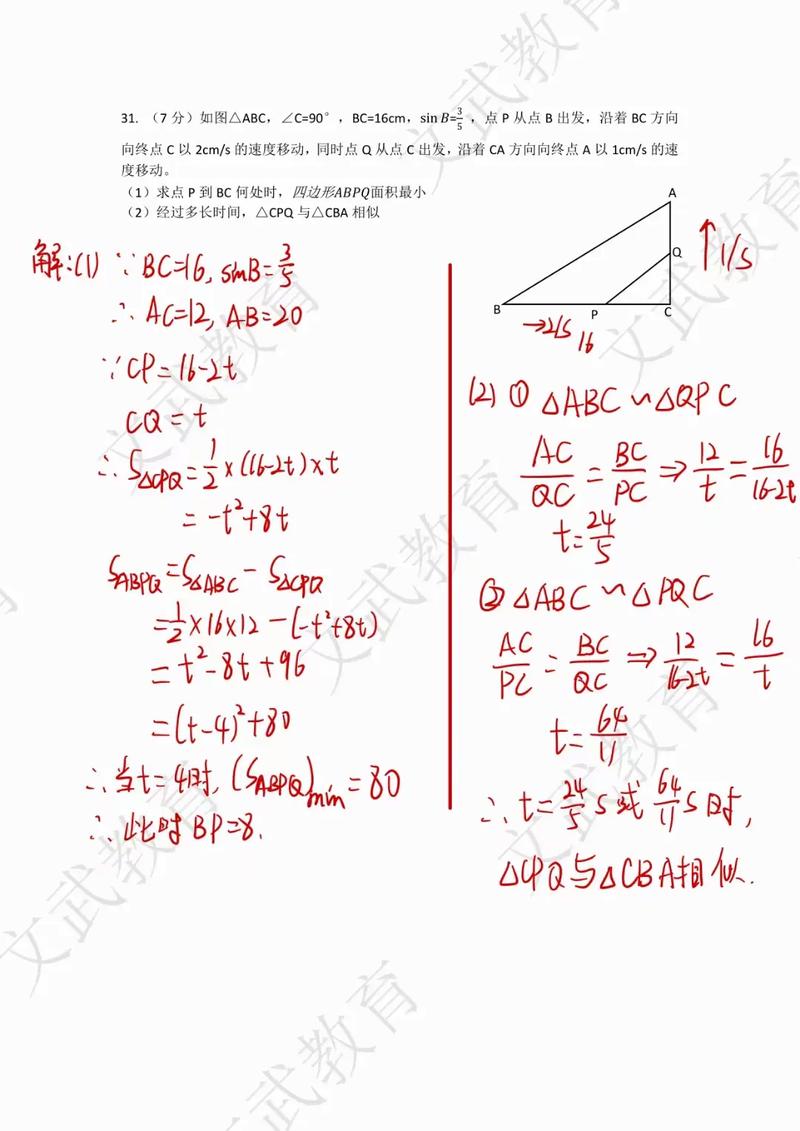 31. （7 分）如图△ABC，∠C=90°，BC=16cm，sin B=3/5，点 P 从点 B 出发，沿着 BC 方向
向终点 C 以 2cm/s 的速度移动，同时点 Q 从点 C 出发，沿着 CA 方向向终点 A 以 1cm/s 的速
度移动。
（1）求点 P 到 BC 何处时，四边形ABPQ面积最小
（2）经过多长时间，△CPQ 与△CBA 相似
A
Q
↑1/s
B
P
C
→2/s
16
解:(1) ∵BC=16, sinB=3/5
∴AC=12, AB=20
∵CP=16-2t
CQ=t
∴S△CPQ=1/2×(16-2t)×t
=-t²+8t
SABPQ=S△ABC-S△CPQ
=1/2×16×12-(-t²+8t)
=t²-8t+96
=(t-4)²+80
∴当t=4时,(SABPQ)min=80
∴此时BP=8.
(2)① △ABC∽△QPC
AC/QC=BC/PC⇒12/t=16/16-2t
t=24/5
②△ABC∽△PQC
AC/PC=BC/QC⇒12/16-2t=16/t
t=64/11
∴t=24/5s或64/11s时,
△CPQ与△CBA相似.
文武教育
文武教育
文武教育
文武教育
文武教育
文武教育
文武教育
文武教育